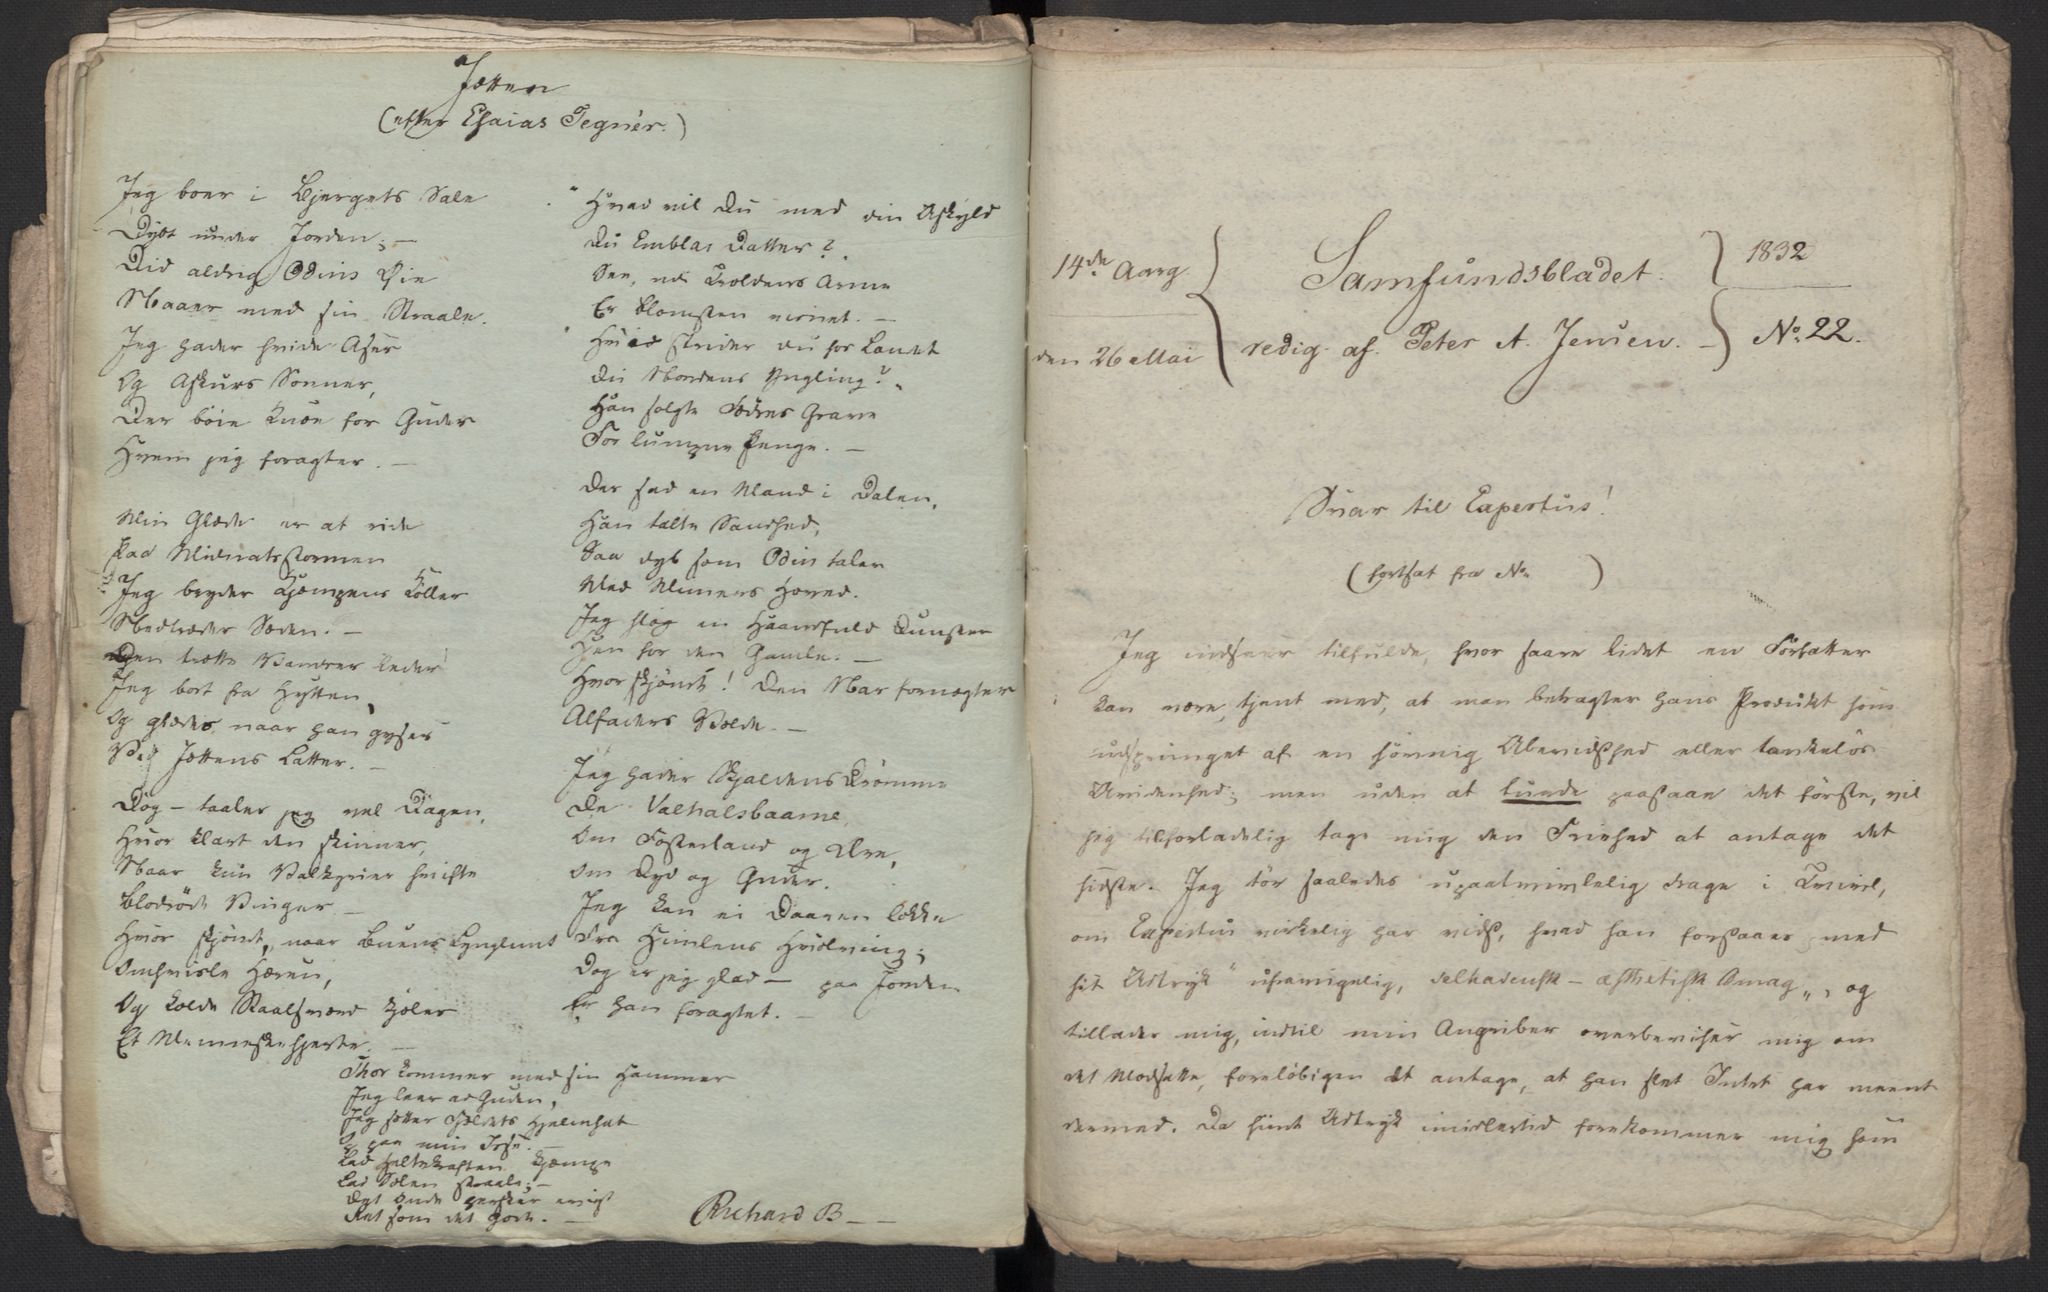 Jetten
(efter Esaias Tegnér.)
Jeg boer i Bjergets Sale
Dybt under Jorden; —
Did aldrig Odins Øie
Naaer med sin Straale.
Jeg hader hvide Aser
Og Askurs Sønner,
Der böie Knæe for Guder
Hvem jeg foragter. —
Min Glæde er at ride
Paa Midnatsstormen
Jeg bryder Kjæmpens Köller
Nedtræder Sæden. —
Den trætte Vandrer leder
Jeg bort fra Hytten,
Og glædes, naar han gyser
Ved Jettens Latter. —
Dog — taaler jeg vel Dagen,
Hvor klart den skinner,
Naar kun Valkyrier hvifte
Blodröde Vinger —
Hvor skjönt, naar Buens Lynglimt
Omhvisle Hæren,
Og kolde Staalsværd kjöler
Et Menneskehjerte. —
"Hvad vil Du med din Uskyld
Du Emblas Datter?"
See, udi Troldens Arme
Er Blomsten visnet. —
"Hvad strider du for Landet
Du Nordens Yngling?"
Han solgte Fædres Grave
For lumpne Penge. —
Der sad en Mand i Dalen,
Han talte Sandhed,
Saa dyb som Odin taler
Med Mimers Hoved.
Jeg slog en Haandfuld Dunster
Hen for den Gamle. —
Hvor skjöndt! Den Nar fornegter
Alfaders Vælde. —
Jeg hader Skjaldens Drömme
De Valhalsbaarne,
Om Fosterland og Ære,
Om Dyd og Guder.
Jeg kan ei Daaren lokke
Fra Himlens Hvælving;
Dog er jeg glad — paa Jorden
Er han foragtet. —
Thor kommer med sin Hammer
Jeg leer ad Guden,
Jeg sætter Fjeldets Hjelmhat
Op paa min Isse. —
Lad Heltekraften kjæmpe
Lad Solen straale; —
Det Onde hersker evigt
Ret som det Gode. —
Richard B — —
14de Aarg.
den 26 Mai
Samfundsbladet.
redig. af. Peter A. Jensen. —
1832
No. 22.
Svar til Expertus!
(fortsat fra No. )
Jeg indseer tilfulde, hvor saare lidet en Forfatter
kan være tjent med, at man betragter hans Produkt som
udspringet af en hövnig Abevidshed eller tankelös
Uvidenhed; men uden at turde paastaae det förste, vil
jeg tilforladelig tage mig den Friehed at antage det
sidste. Jeg tör saaledes upaatvivlelig drage i Tvivl,
om Expertus virkelig har vidst, hvad han forstaaer med
sit Udtryk "usvimgelig, delkadensk — æsthetisk Smag", og
tillader mig, indtil min Angriber overbeviser mig om
det Modsatte, forelöbigen at antage, at han slet Intet har meent
dermed. Da hiint Udtryk imidlertid forekommer mig som